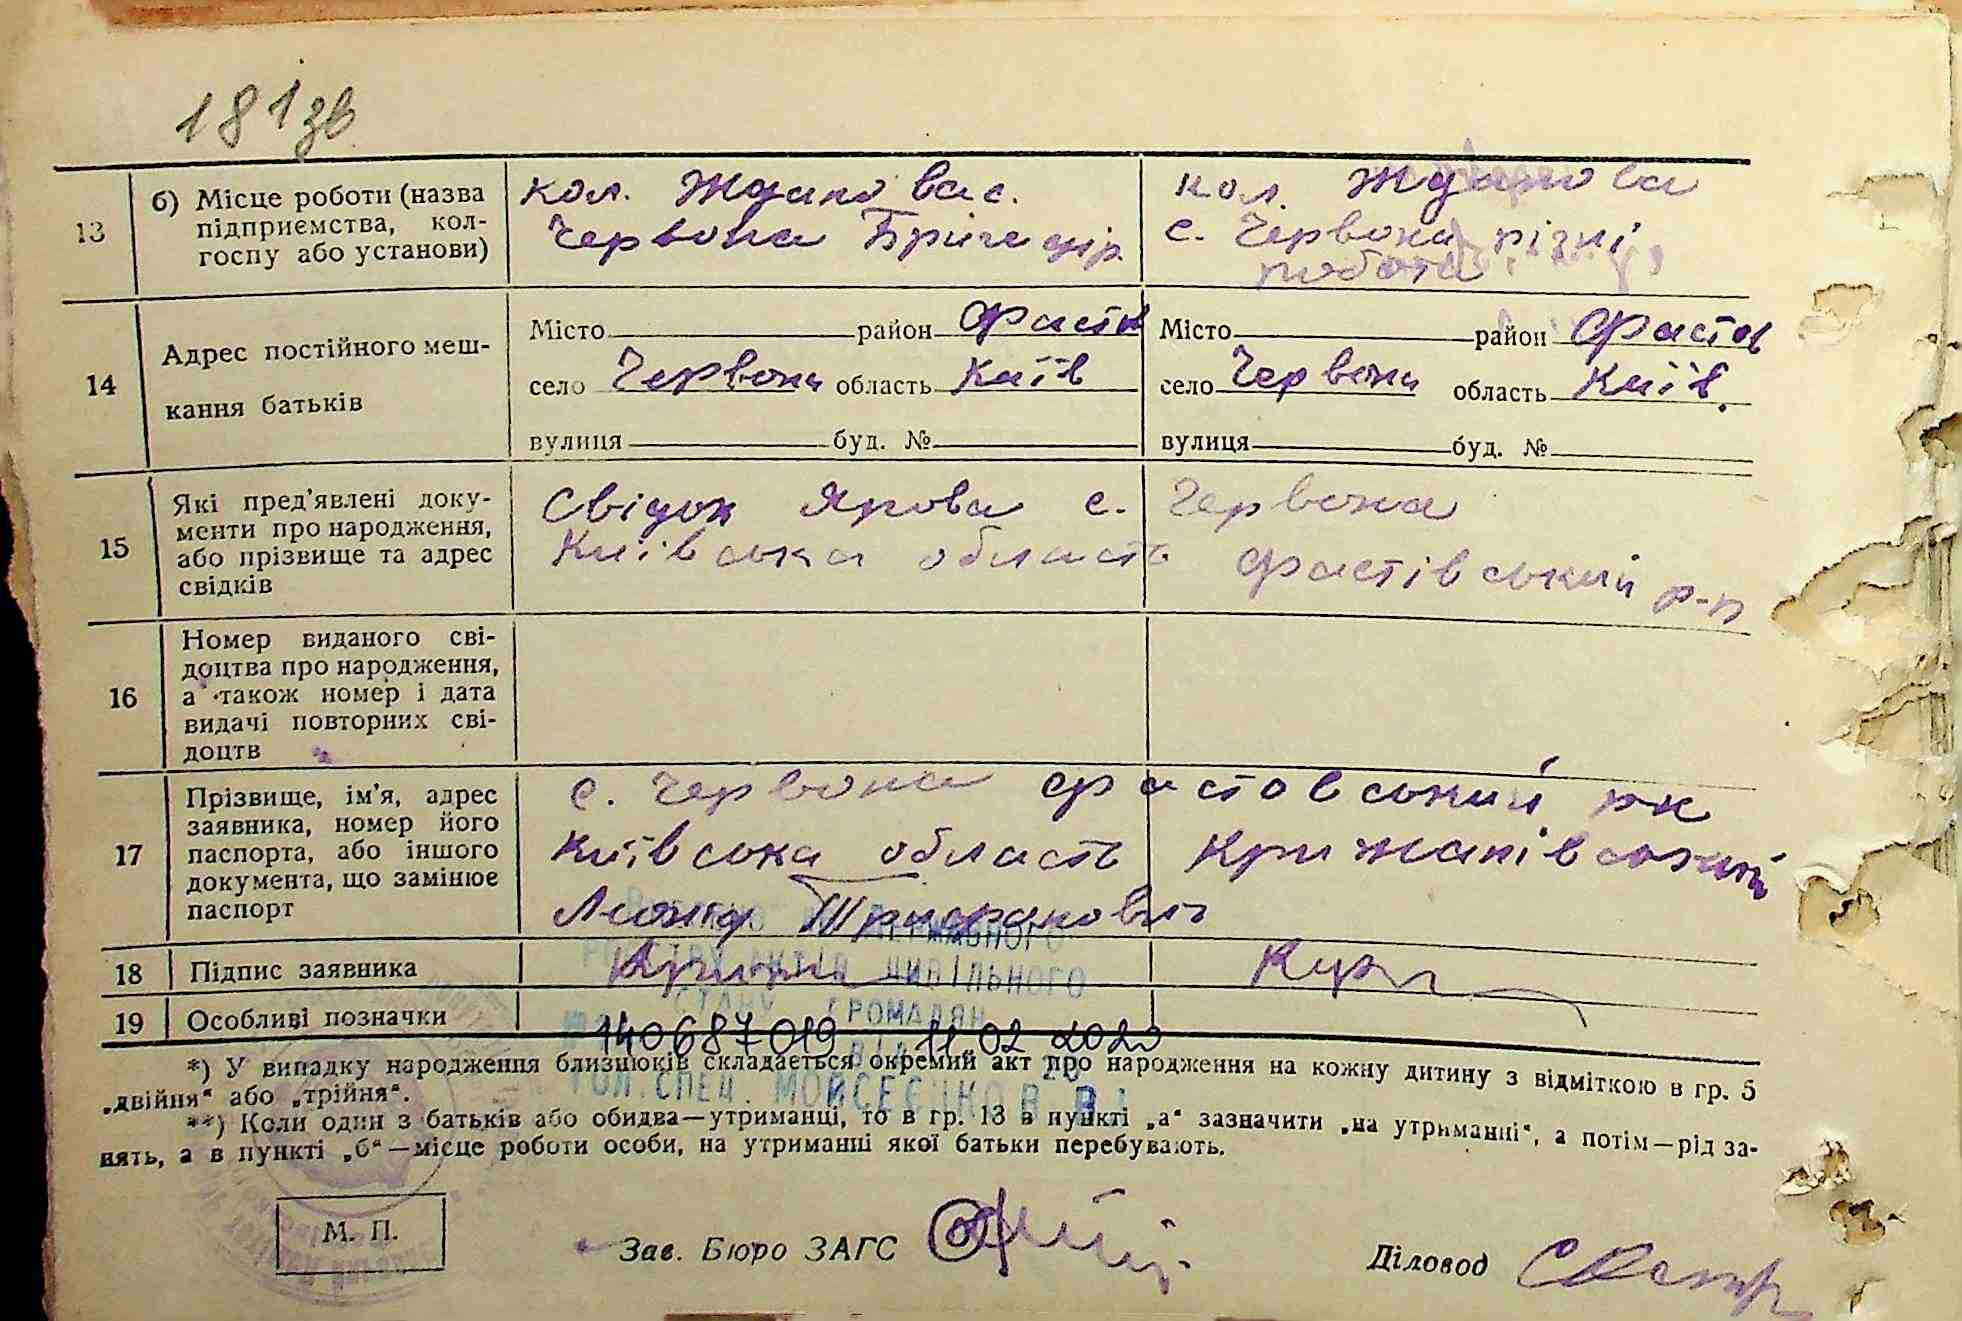 181зв
13
б) Місце роботи (назва
підприємства, кол-
госпу або установи)
кол. Жданова с.
Червона Бригадір.
кол. Жданова
с. Червона різні
робота
14
Адрес постійного меш-
кання батьків
Місто район Фастів
село Червона область Київ
вулиця буд. №
Місто район Фастов
село Червона область Київ.
вулиця буд. №
15
Які пред'явлені доку-
менти про народження,
або прізвище та адрес
свідків
Свідок Ярова с. Червона
Київська область Фастівський р-н
16
Номер виданого сві-
доцтва про народження,
а також номер і дата
видачі повторних сві-
доцтв
17
Прізвище, ім'я, адрес
заявника, номер його
паспорта, або іншого
документа, що замінює
паспорт
с. Червона Фастовський
Київська область Крижанівський
Леонід Трифанович
18
Підпис заявника
19
Особливі позначки
ДЕРЖАВНОГО
РЕЄСТРУ АКТІВ ЦИВІЛЬНОГО
СТАНУ ГРОМАДЯН
140687019 11.02 2020
ГОЛ.СПЕЦ. МОЙСЕЄНКО В.В.
*) У випадку народження близнюків складається окремий акт про народження на кожну дитину з відміткою в гр. 5
„двійня“ або „трійня“.
**) Коли один з батьків або обидва—утриманці, то в гр. 13 в пункті „а“ зазначити „на утриманні“, а потім—рід за-
нять, а в пункті „б“—місце роботи особи, на утриманні якої батьки перебувають.
М. П.
Зав. Бюро ЗАГС
Діловод